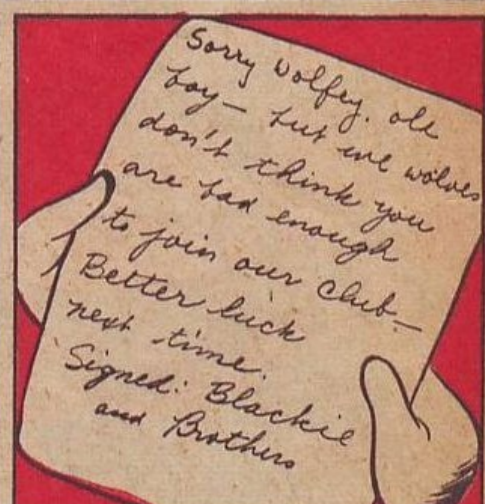 Sorry Wolfey. old
boy— but we wolves
don't think you
are bad enough
to join our club—
Better luck
next time.
Signed: Blackie
and Brothers